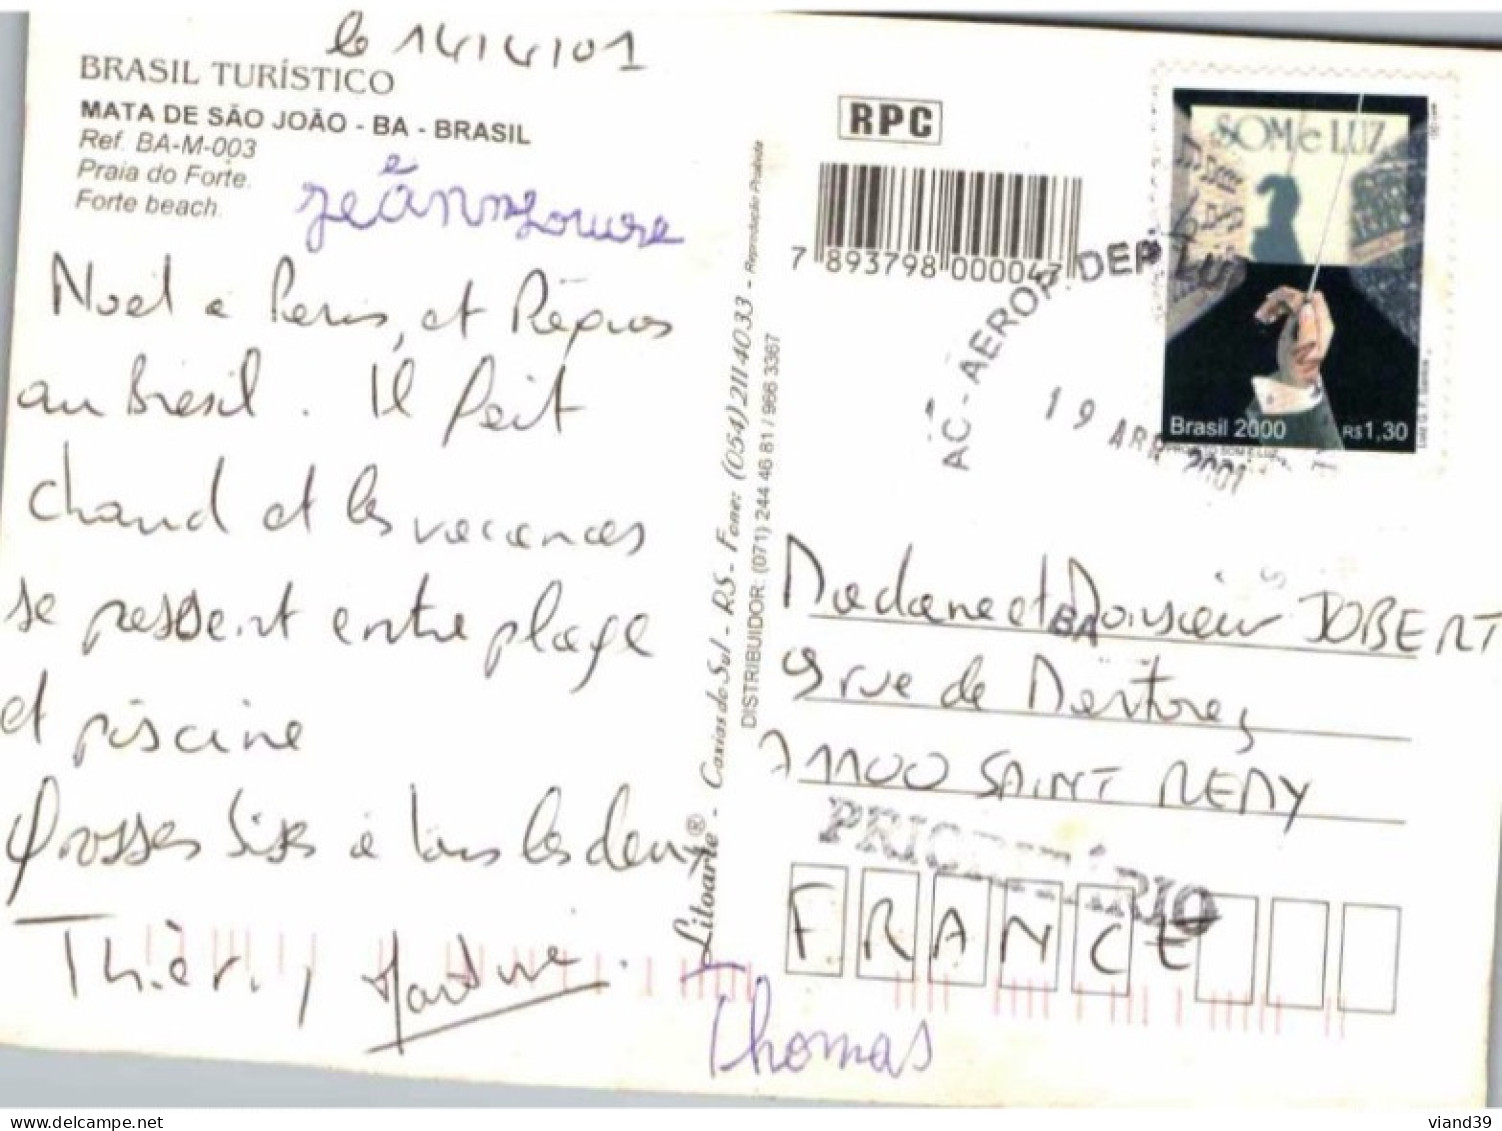 le 14/4/01
BRASIL TURÍSTICO
MATA DE SÃO JOÃO - BA - BRASIL
Ref. BA-M-003
Praia do Forte.
Forte beach.
Noël à Paris, et Pâques
au Brésil. Il fait
chaud et les vacances
se passent entre plage
et piscine
Grosses bises à tous les deux
Thierry, Martine.
Thomas
Litoarte® - Caxias do Sul - RS - Fone: (054) 211 4033 - Reprodução Proibida
DISTRIBUIDOR: (071) 244 46 81 / 966 3367
RPC
7 893798 000047
SOM e LUZ
Brasil 2000 R$1,30
AC - AEROP. DEP
19 ABR 2001
BA
Madame et Monsieur JOBERT
9 rue de
71100 SAINT REMY
PRIORITÁRIO
FRANCE
viand39